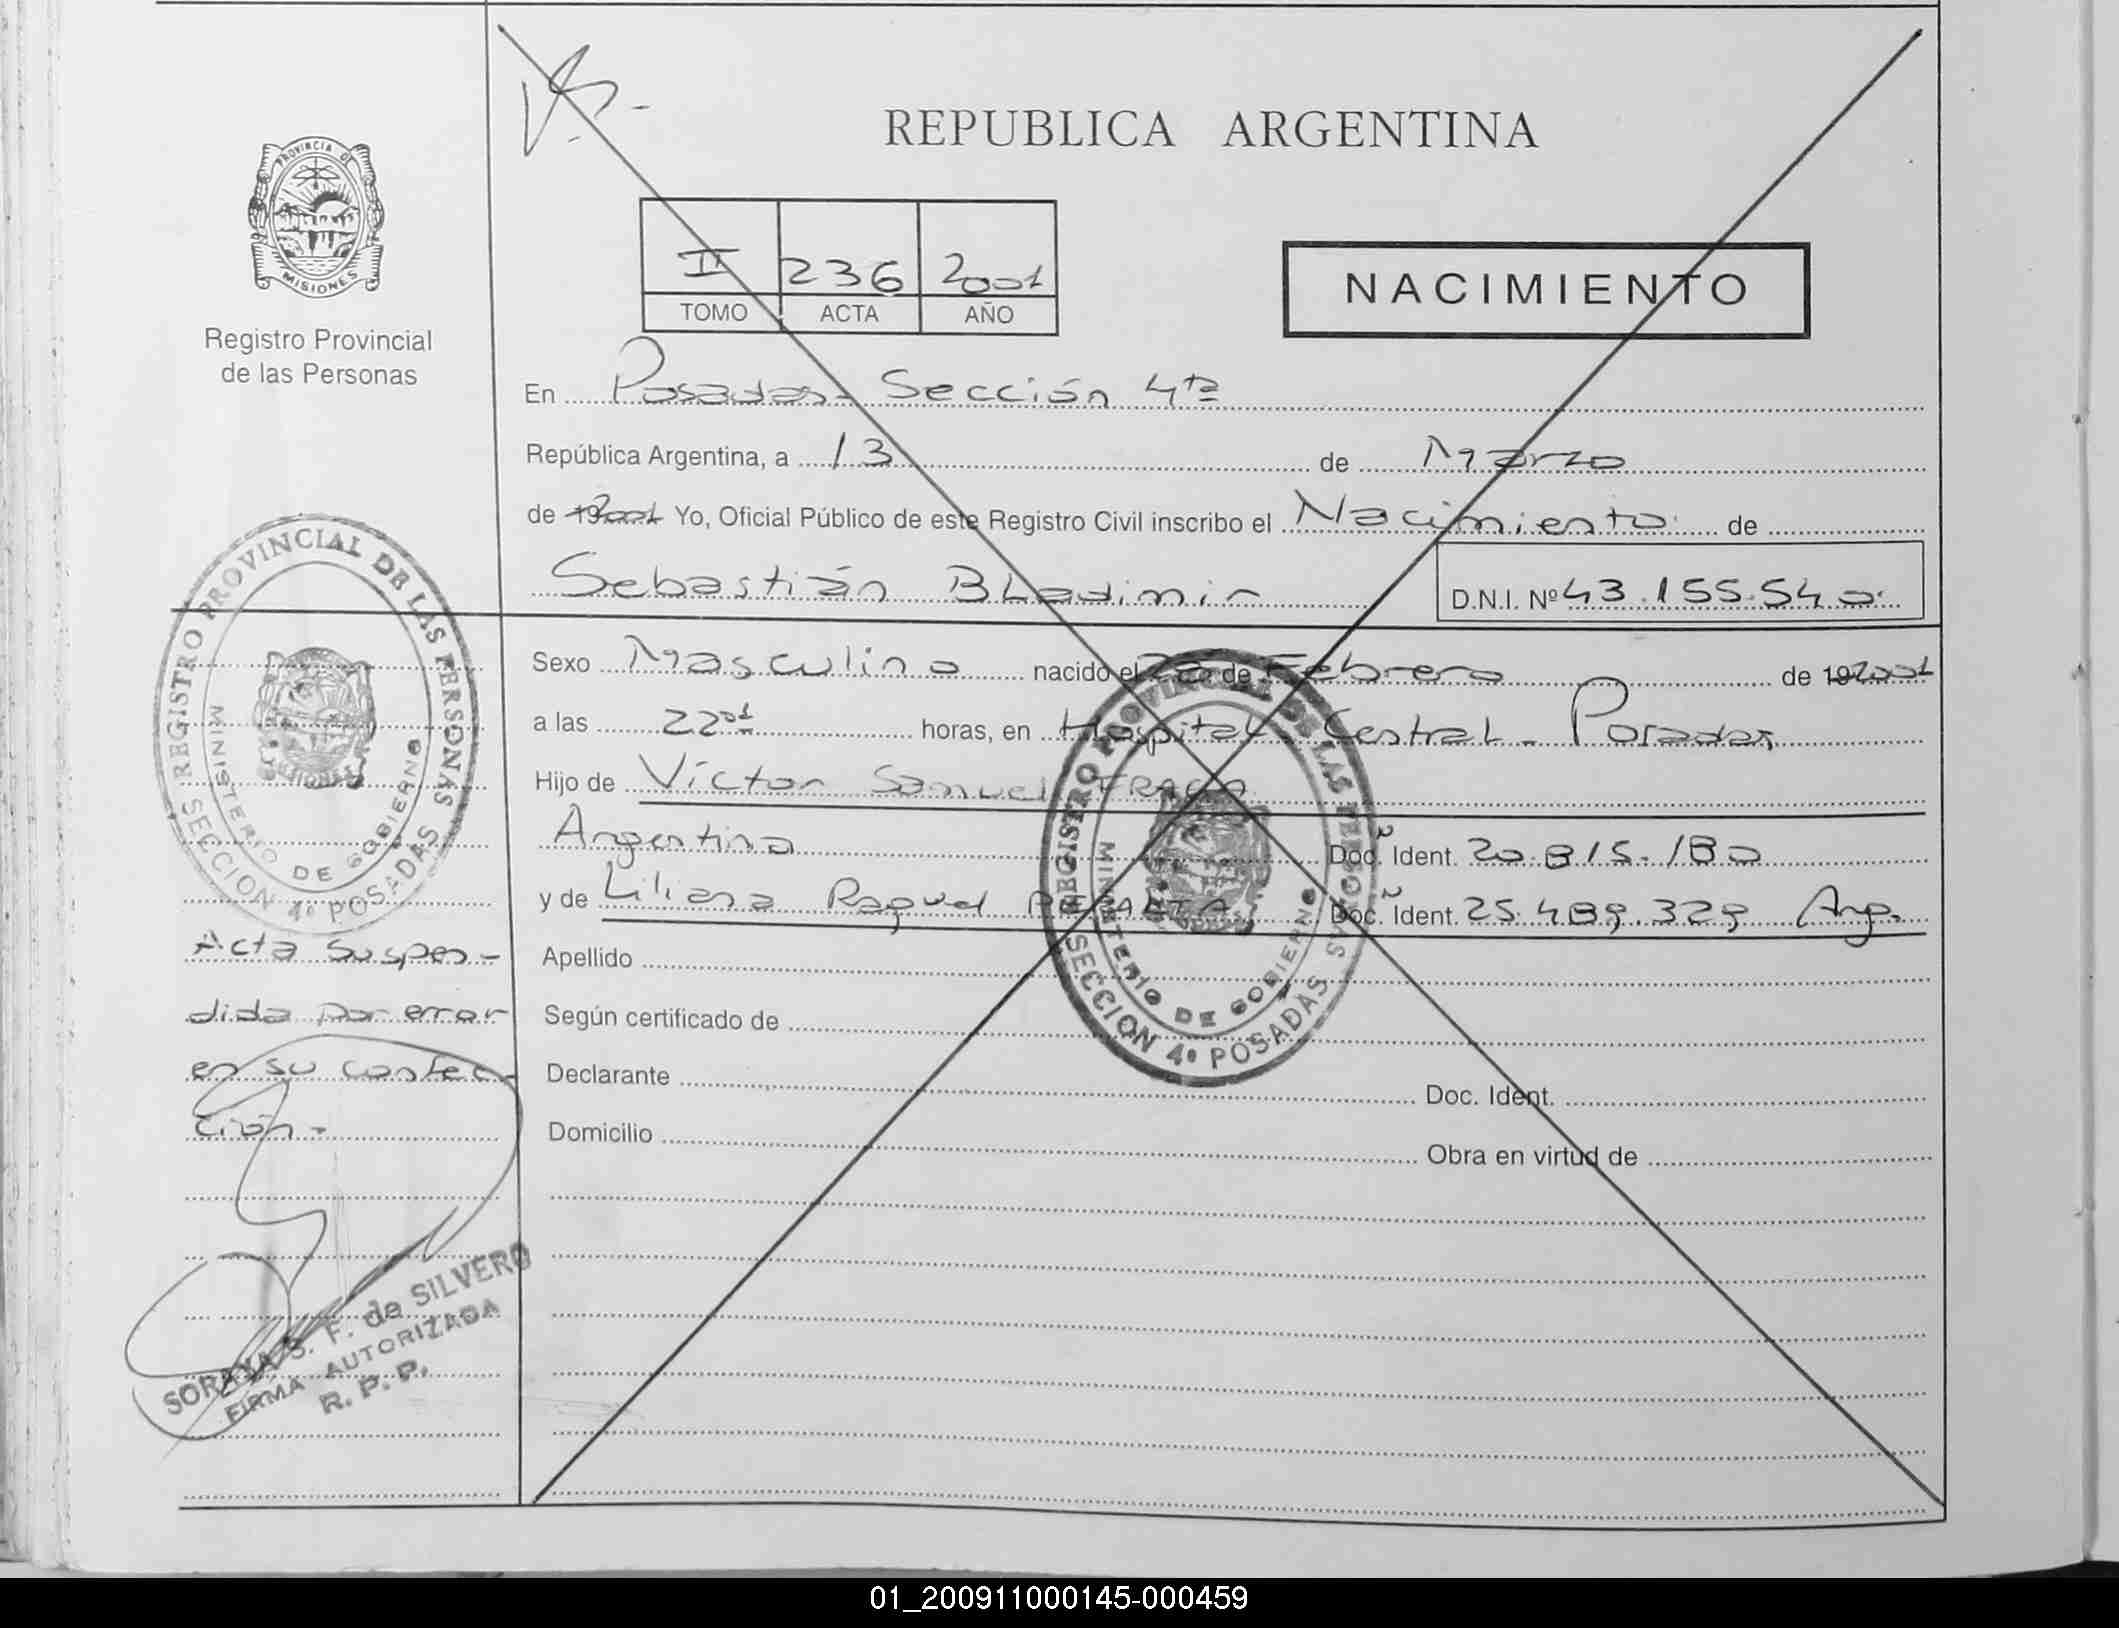 REPUBLICA ARGENTINA
PROVINCIA DE
MISIONES
Registro Provincial
de las Personas
II 236 2001
TOMO ACTA AÑO
NACIMIENTO
En Posadas - Sección 4ta
República Argentina, a 13 de Marzo
de 2001 Yo, Oficial Público de este Registro Civil inscribo el Nacimiento de
Sebastián BLadimir D.N.I. Nº 43.155.540
Sexo Masculino nacido el de Febrero de 192001
a las 22 01 horas, en Hospital Central - Posadas
Hijo de Víctor Samuel
Argentina Doc. Ident. 20.815.180
y de Liliana Raquel PERALTA Doc. Ident. 25.489.329 Arg.
Apellido
Según certificado de
Declarante
Doc. Ident.
Domicilio
Obra en virtud de
REGISTRO PROVINCIAL DE LAS PERSONAS
MINISTERIO DE GOBIERNO
SECCION 4º POSADAS
Acta suspen-
dida por error
en su confec-
ción -
SORAYA S. F. de SILVERO
FIRMA AUTORIZADA
R. P. P.
REGISTRO PROVINCIAL DE LAS PERSONAS
MINISTERIO DE GOBIERNO
SECCION 4º POSADAS
01_200911000145-000459